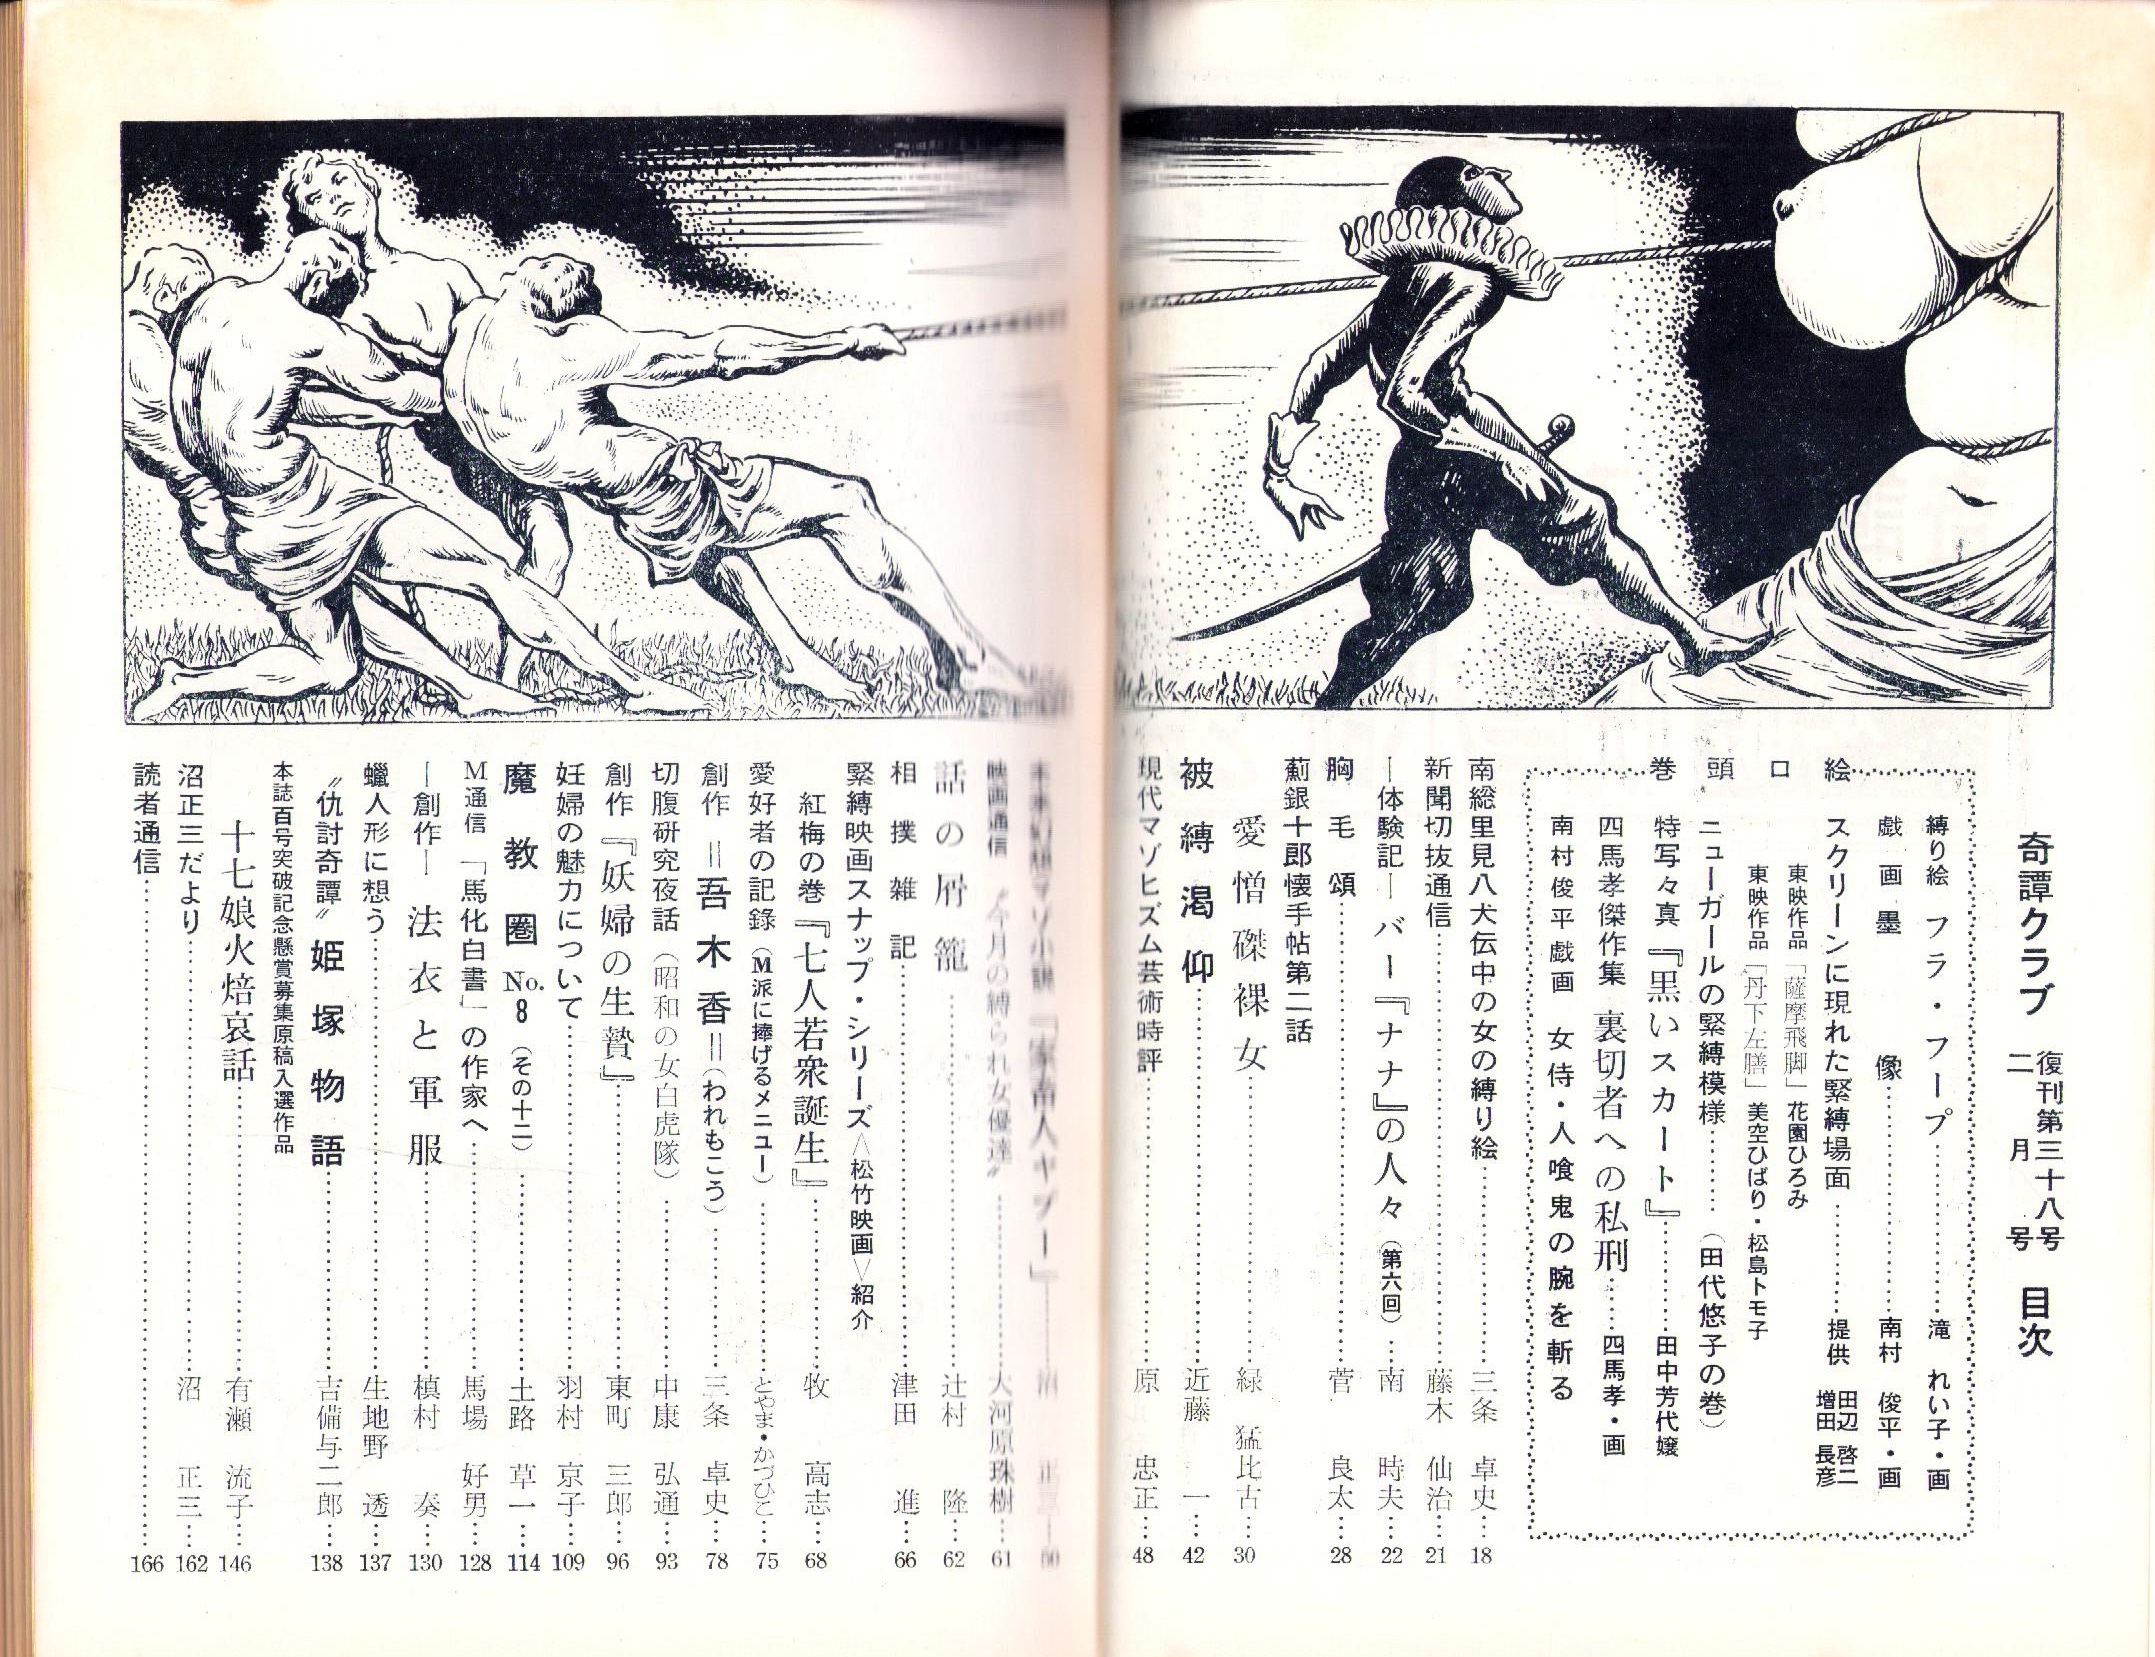 奇譚クラブ 復刊第三十八号 二月号 目次
巻頭口絵
縛り絵 フラ・フープ…………滝 れい子・画
戯画墨像…………南村 俊平・画
スクリーンに現れた緊縛場面…………提供 田辺 啓二 増田 長彦
東映作品「薩摩飛脚」花園ひろみ
東映作品「丹下左膳」美空ひばり・松島トモ子
ニューガールの緊縛模様………(田代悠子の巻)
特写々真『黒いスカート』…………田中芳代嬢
四馬孝傑作集 裏切者への私刑……四馬孝・画
南村俊平戯画 女侍・人喰鬼の腕を斬る
南総里見八犬伝中の女の縛り絵…………三条 卓史…18
新聞切抜通信…………藤木 仙治…21
―体験記― バー『ナナ』の人々(第六回)……南 時夫…22
胸毛頌…………菅 良太…28
薊銀十郎懐手帖第二話
愛憎磔裸女…………緑 猛比古…30
被縛渇仰…………近藤 一…42
現代マゾヒズム芸術時評…………原 忠正…48
マゾ小説『家畜人ヤプー』…………沼 正三…50
映画通信 〝今月の縛られ女優達〟…………大河原珠樹…61
話の屑籠…………辻村 隆…62
相撲雑記…………津田 進…66
緊縛映画スナップ・シリーズ<松竹映画>紹介
紅梅の巻『七人若衆誕生』…………牧 高志…68
愛好者の記録(M派に捧げるメニュー)…………とやま・かづひこ…75
創作 =吾木香=(われもこう)…………三条 卓史…78
切腹研究夜話(昭和の女白虎隊)…………中康 弘通…93
創作『妖婦の生贄』…………東町 三郎…96
妊婦の魅力について…………羽村 京子…109
魔教圏 No.8(その十二)…………土路 草一…114
M通信「馬化白書」の作家へ…………馬場 好男…128
―創作― 法衣と軍服…………槙村 奏…130
蠟人形に想う…………生地野 透…137
〝仇討奇譚〟姫塚物語…………吉備与二郎…138
本誌百号突破記念懸賞募集原稿入選作品
十七娘火焙哀話…………有瀬 流子…146
沼正三だより…………沼 正三…162
読者通信…………166